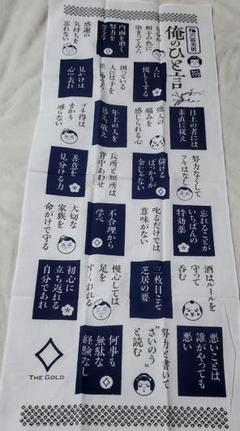 俺のひと言
目上の者には
素直に従え
努力なくして
ツキはなし
忘れることが
いちばんの
特効薬
酒はルールを
守って
呑む
悪いことは
誰がやっても
悪い
人には
優しくする
他人の
痛みを
感じられる
儲ける
ばっかりが
金じゃない
叱るだけでは
意味がない
三枚目こそ
芝居の要
努力と書いて
“さいのう”
と読む
内面を磨く
努力を
困っている
人には手を
年上の人を
敬う
長所と短所は
背中あわせ
不合理から
学べ
慢心しては
足を
すくわれる
何事も
無駄な
経験なし
感謝の
気持ちを
忘れない
見かけは
心の表れ
ゴネ得は
まかり
通らない
善意を
見分ける力
大切な
家族を
命がけで守る
初心に
立ち返れる
自分であれ
THE GOLD